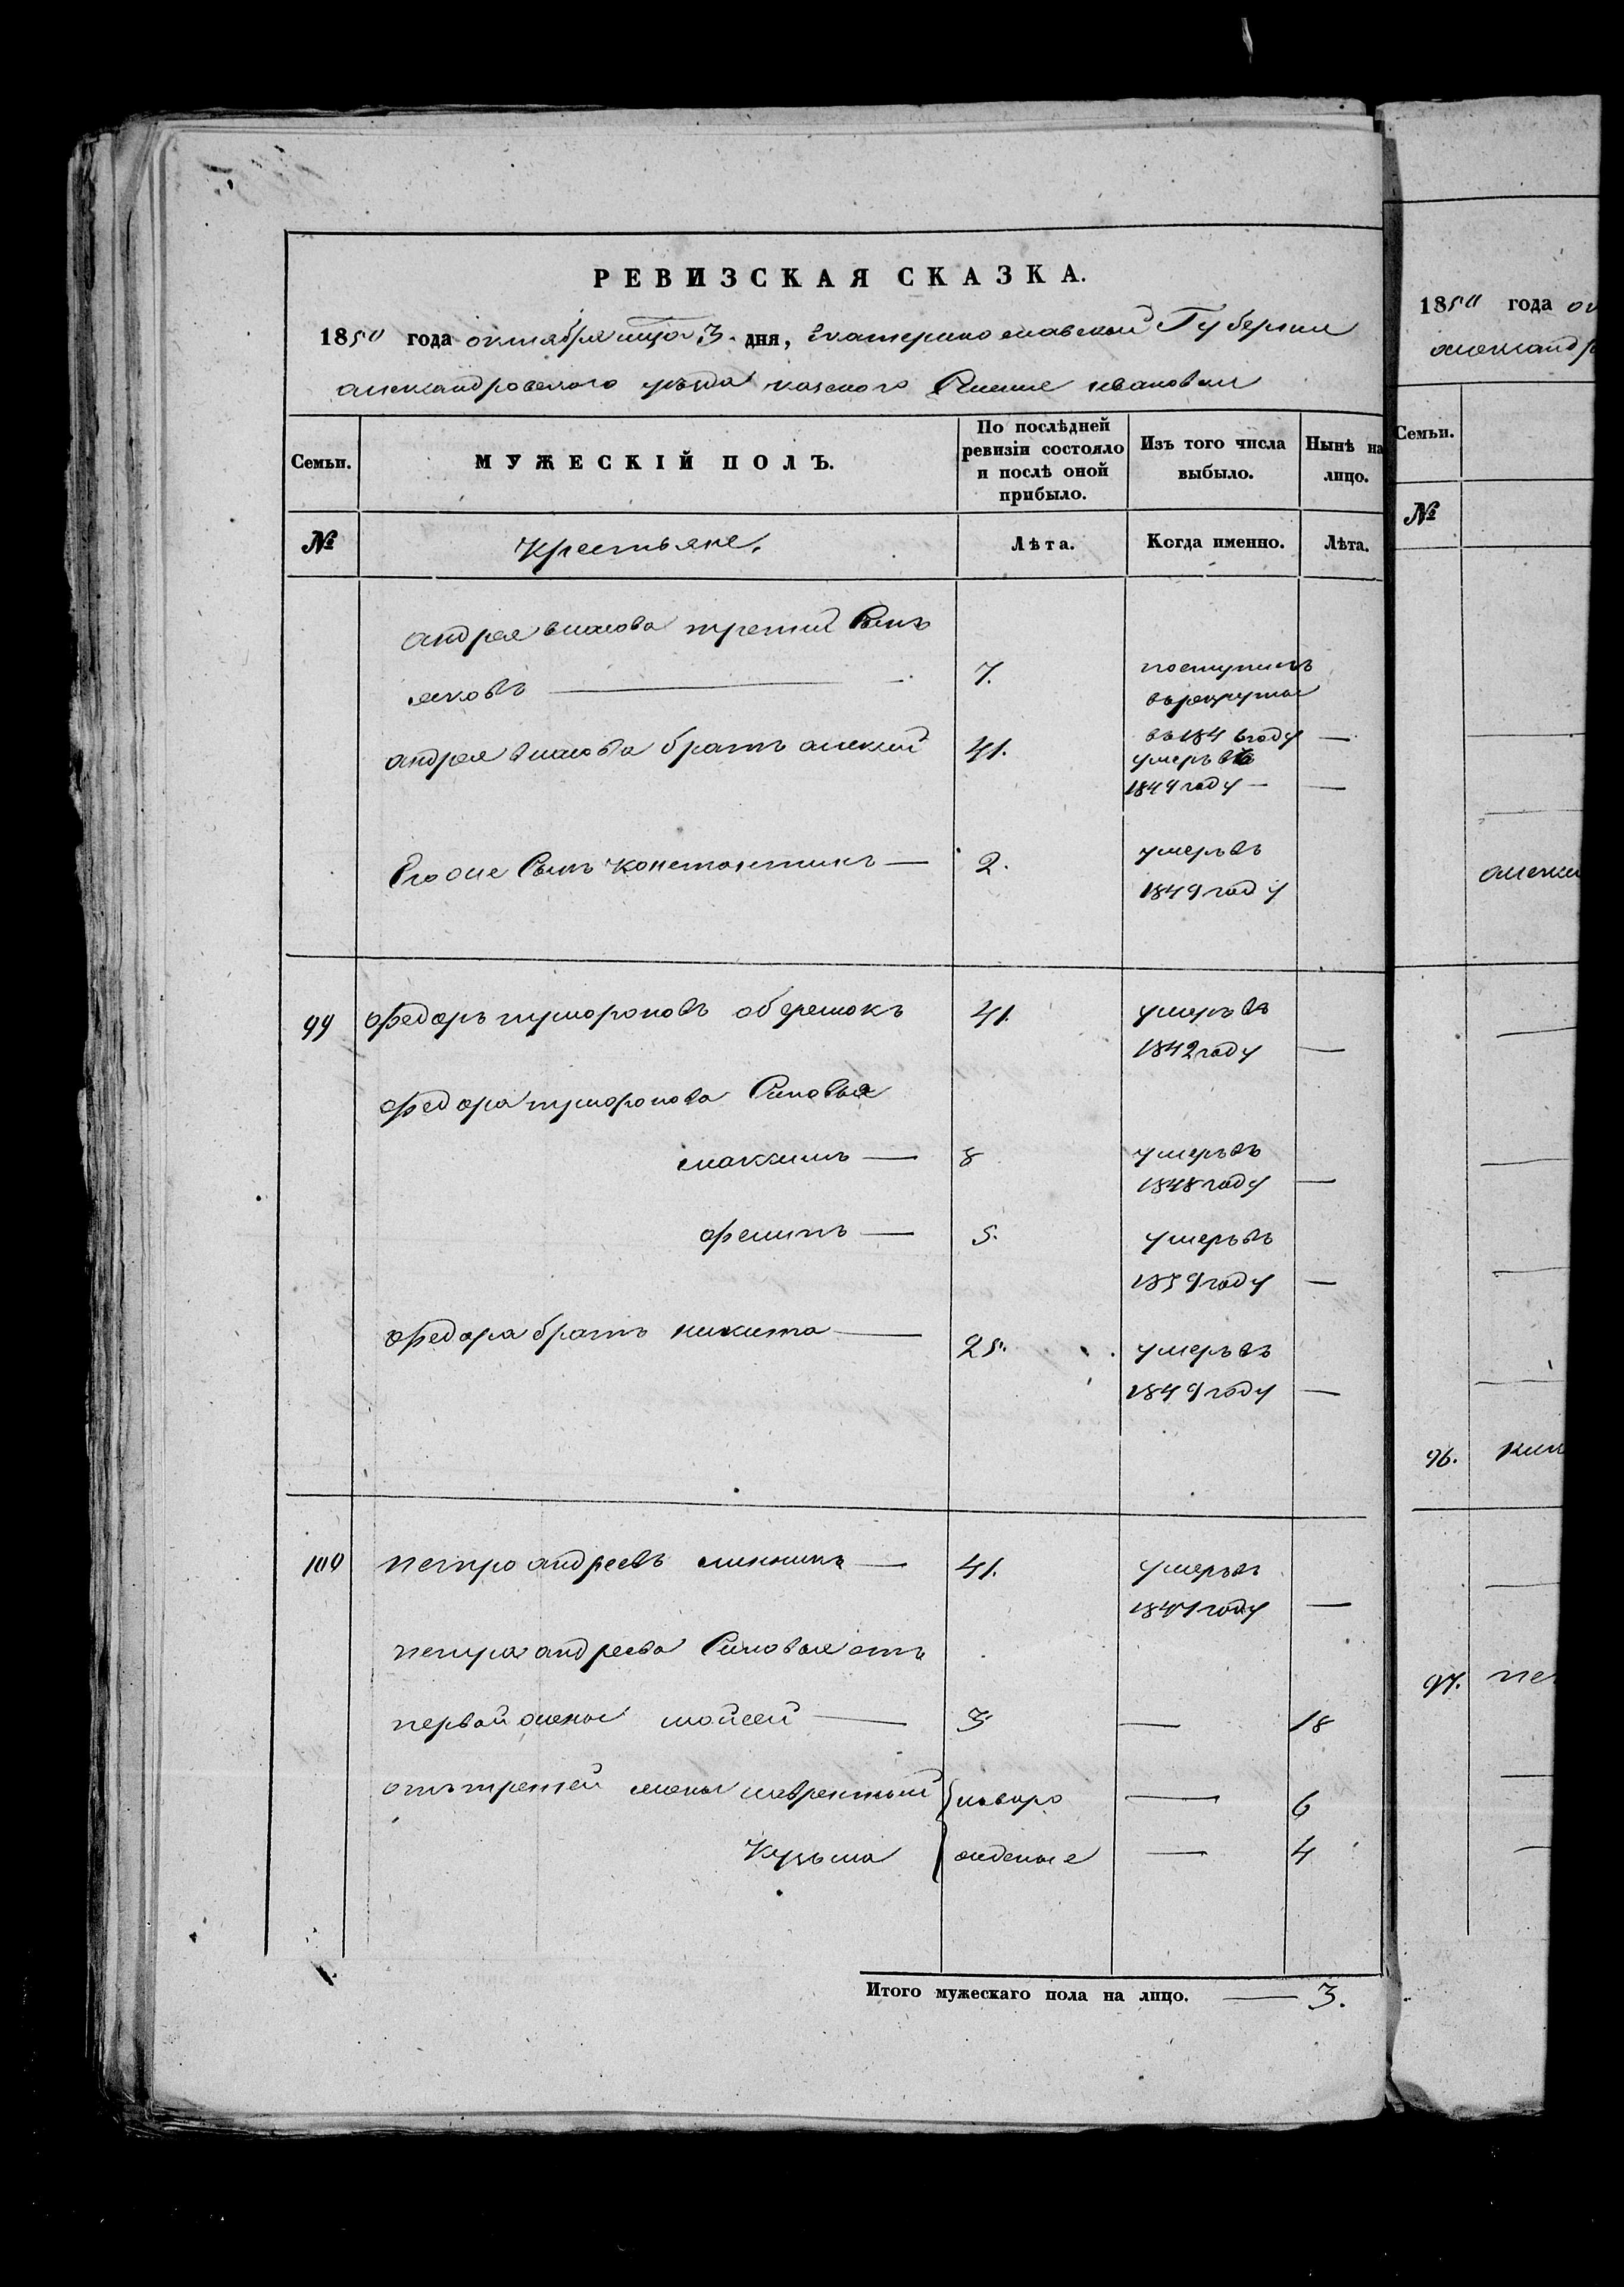 РЕВИЗСКАЯ СКАЗКА.
1850 года октября мца 3. дня, Екатеринославской Губернии
александровского уѣзда казеного Селения ивановки
Семьи.
МУЖЕСКІЙ ПОЛЪ.
По послѣдней ревизіи состояло и послѣ оной прибыло.
Изъ того числа выбыло.
Нынѣ на лицо.
№
Крестьяне.
Лѣта.
Когда именно.
Лѣта.
андрея власова третий Сынъ
яковъ — 7. поступилъ
въ рекруты
въ 1846 году —
андрея власова братъ алексей 41. умеръ въ
1849 году — —
Его же Сынъ Константинъ — 2. умеръ въ
1849 году
99 федоръ тимофоновъ 41. умеръ въ
1842 году —
федора Синовья
максимъ — 8 умеръ въ
1848 году —
филипъ — 5. умеръ въ
1839 году —
федора братъ никита — 25. умеръ въ
1849 году —
100 петро андреевъ — 41. умеръ въ
1847 году —
петра андреева Синовья отъ
первой жены мойсей — 3 — 18
отъ третей жены лаврентий новоро — 6
Кузьма жденые — 4
Итого мужескаго пола на лицо. — 3.
1850 года ок
александр
Семьи.
№
алекс
96.
97. пе